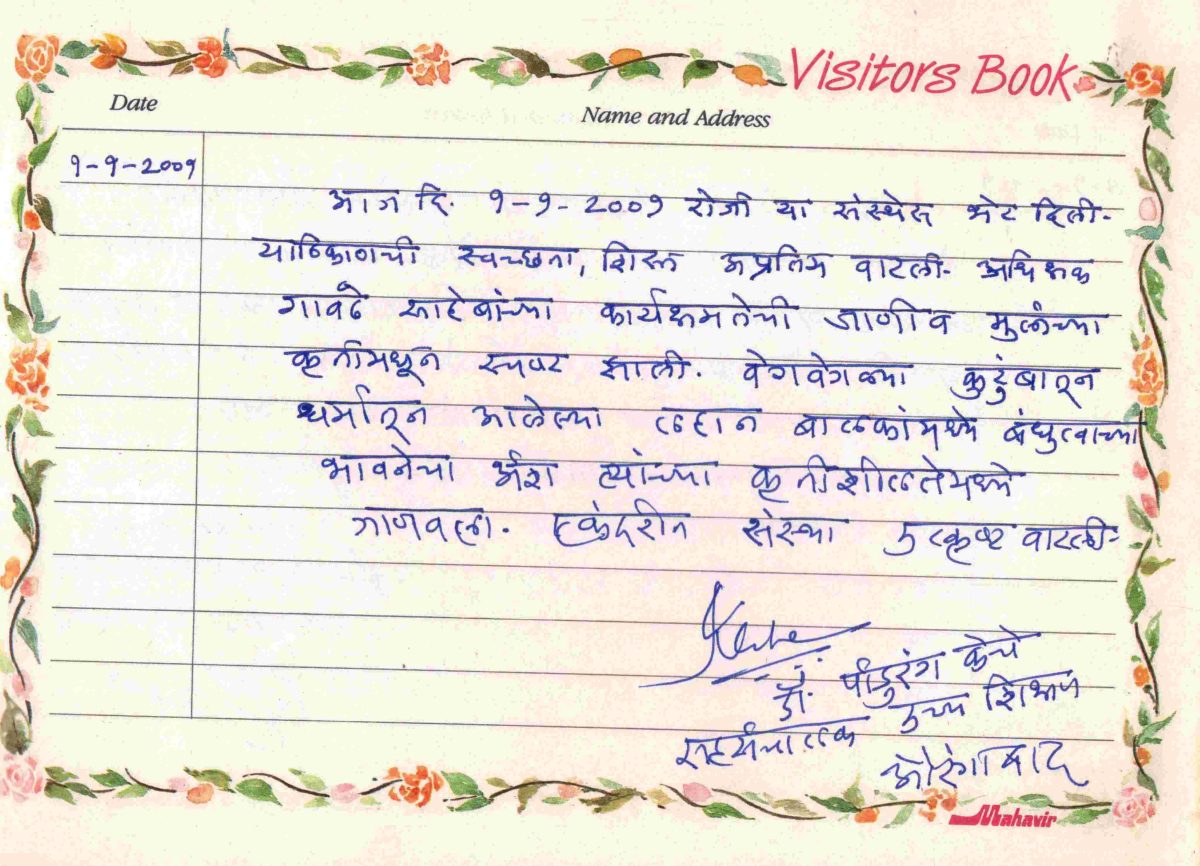 Visitors Book
Date Name and Address
१-१-२००१
आज दि. १-१-२००१ रोजी या संस्थेस भेट दिली.
याठिकाणची स्वच्छता, शिस्त अप्रतिम वाटली. अधिक्षक
गावढे साहेबांच्या कार्यक्षमतेची जाणीव मुलांच्या
कृतीमधून स्पष्ट झाली. वेगवेगळ्या कुटुंबातून
धर्मातून आलेल्या लहान बालकांमध्ये बंधुत्वाच्या
भावनेचा अंश त्यांच्या कृतीशीलतेमध्ये
जाणवला. एकंदरीत संस्था उत्कृष्ट वाटली.
डॉ. पांडुरंग केचे
सहसंचालक उच्च शिक्षण
औरंगाबाद
Mahavir